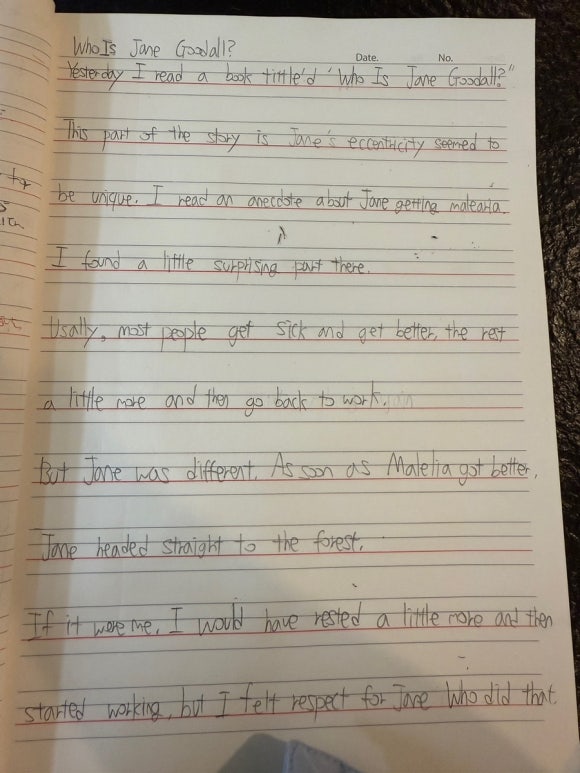 Who Is Jane Goodall?
Date. No.
Yesterday I read a book tittle'd "Who Is Jane Goodall?"
This part of the story is Jane's eccentricity seemed to
be unique. I read an anecdote about Jane getting malearia.
I found a little surprising part there.
Usally, most people get sick and get better, the rest
a little more and then go back to work.
But Jane was different. As soon as Malelia got better,
Jane headed straight to the forest.
If it were me, I would have rested a little more and then
started working, but I felt respect for Jane who did that